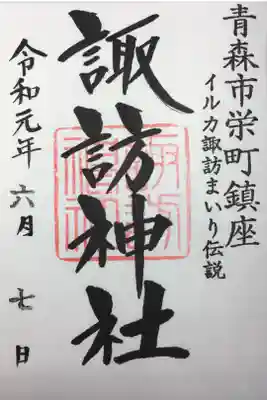 青森市栄町鎮座
イルカ諏訪まいり伝説
諏訪神社
令和元年 六月 七日